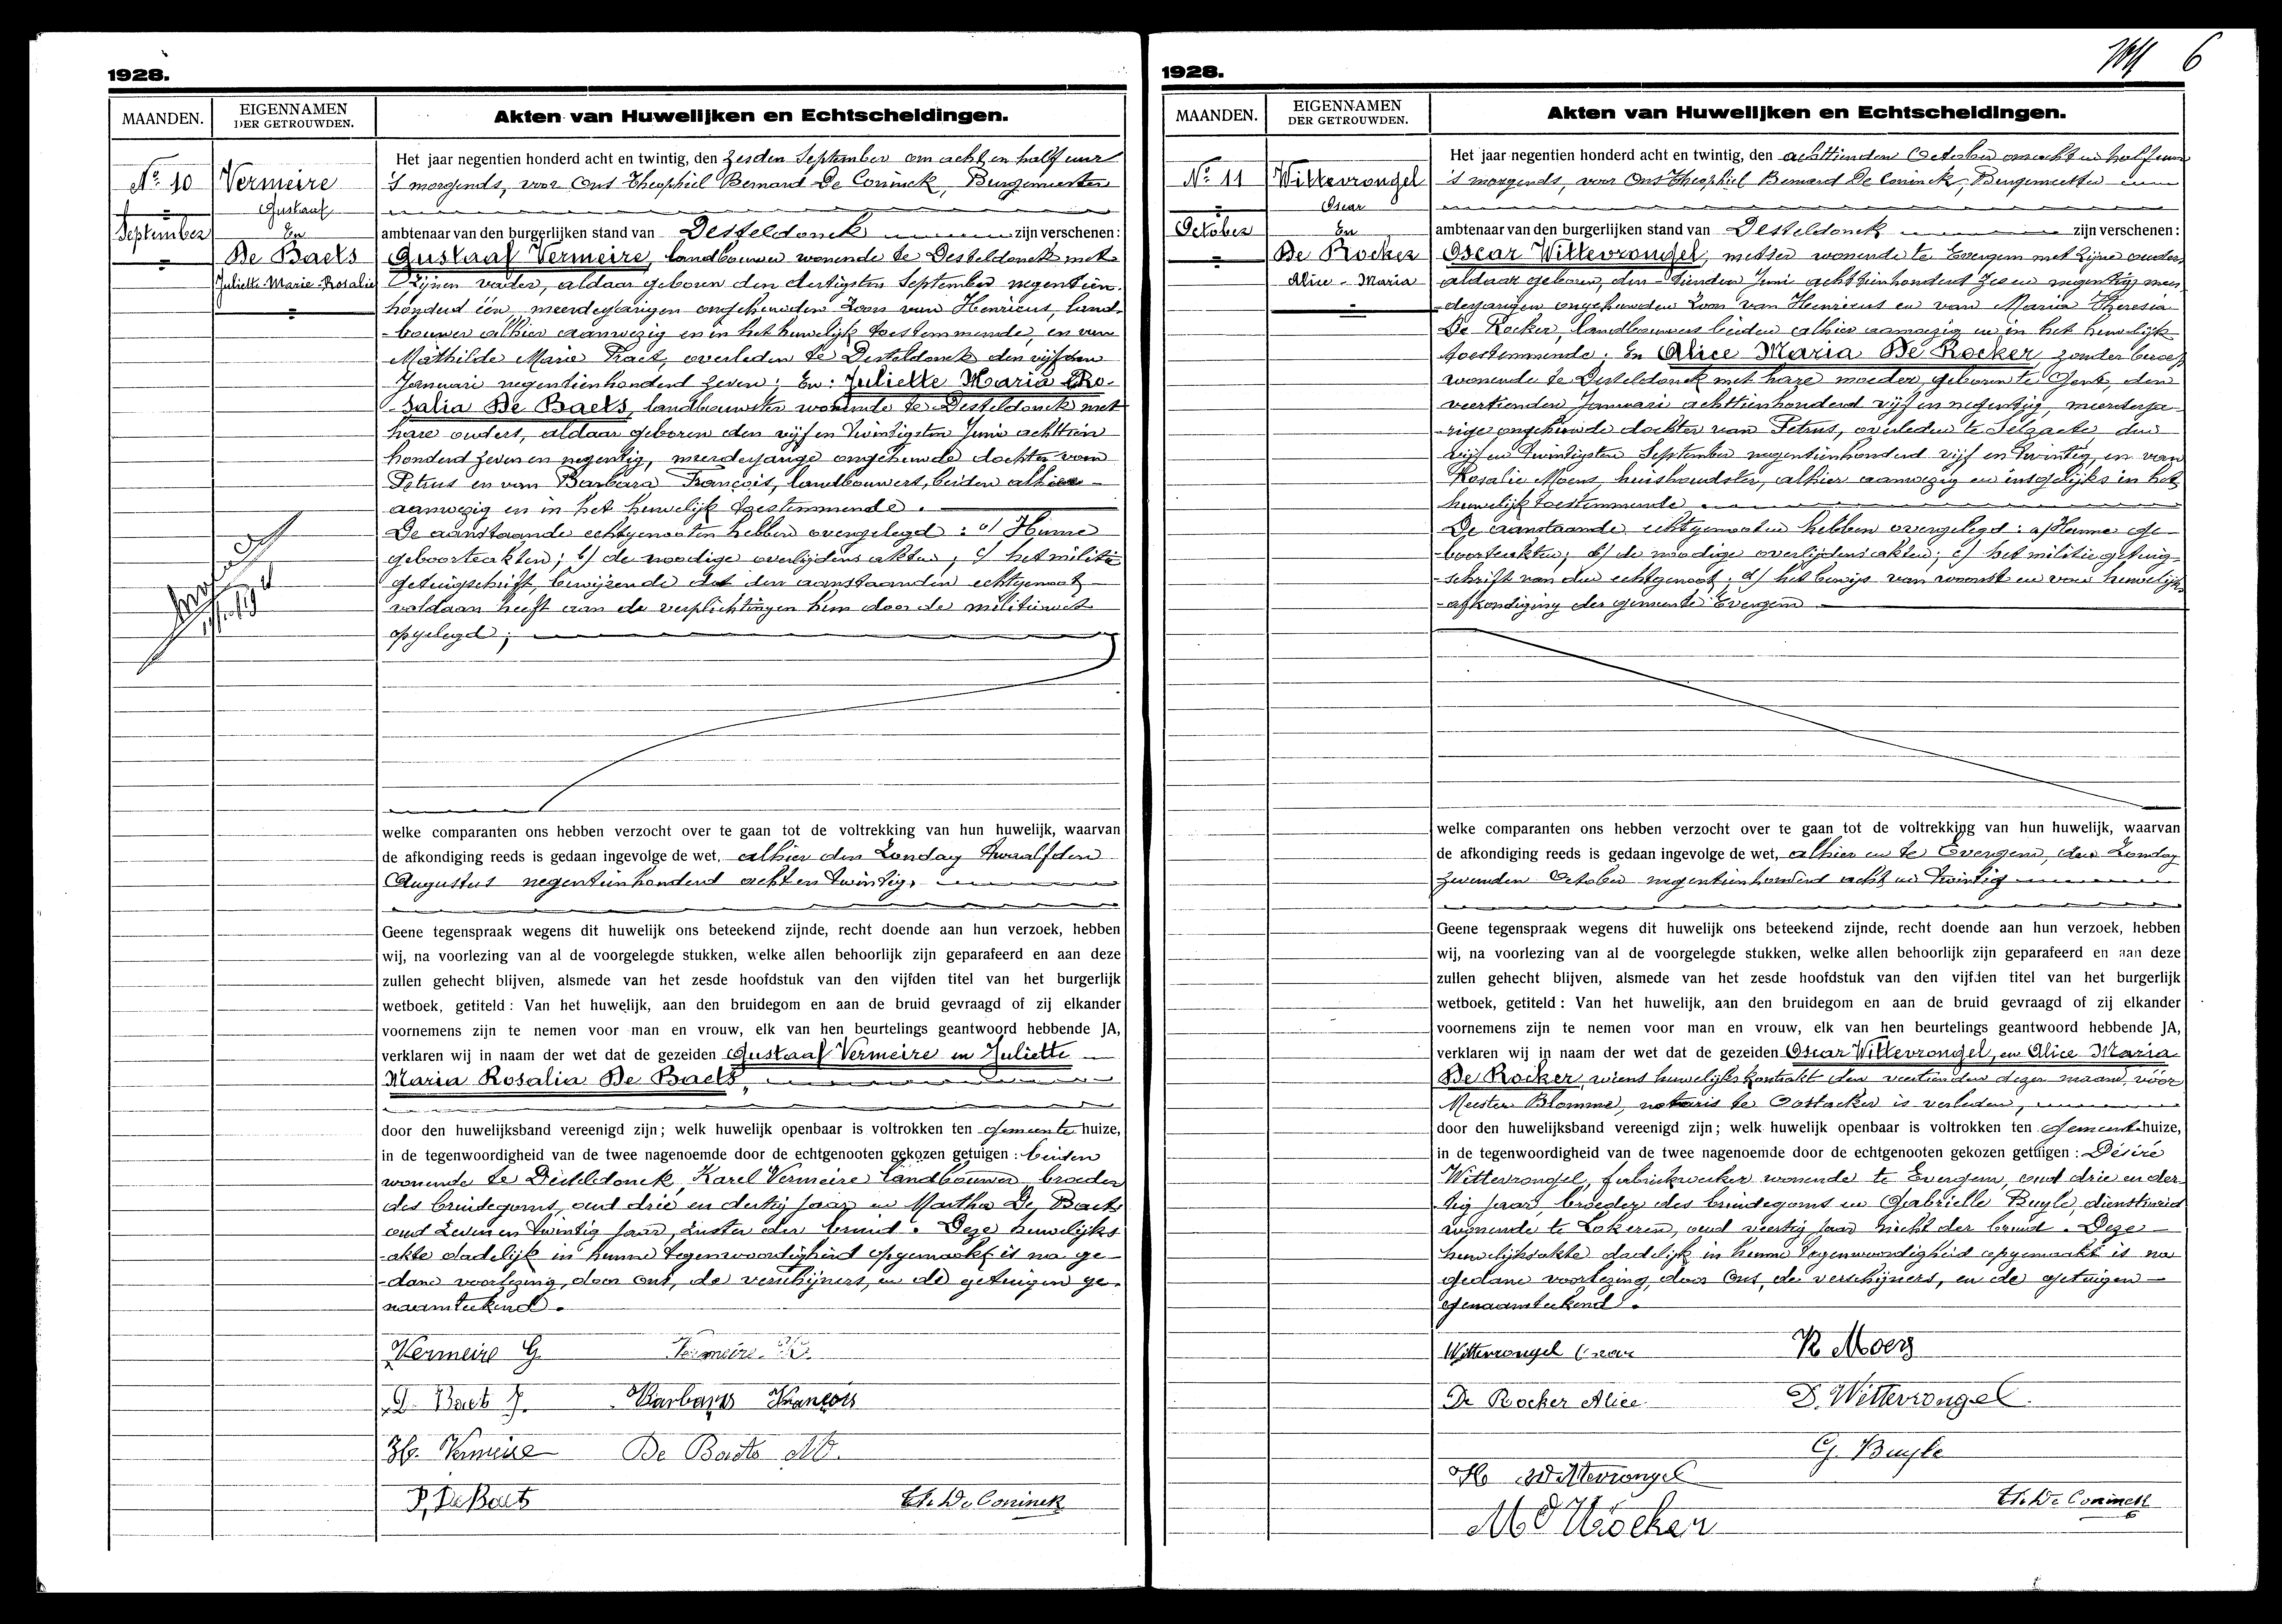 1928.
MAANDEN.
EIGENNAMEN
DER GETROUWDEN.
Akten van Huwelijken en Echtscheidingen.
Nº 10
September
Vermeire
Gustaaf
En
De Baets
Juliette-Marie-Rosalie
Het jaar negentien honderd acht en twintig, den zesden September om acht en half uur
's morgends, voor Ons Theophiel Bernard De Coninck, Burgemeester
ambtenaar van den burgerlijken stand van Desteldonck zijn verschenen:
Gustaaf Vermeire, landbouwer wonende te Desteldonck met
zijnen vader, aldaar geboren den dertigsten September negentien-
honderd één, meerderjarigen ongehuwden zoon van Henricus, land-
-bouwer alhier aanwezig en in het huwelijk toestemmende, en van
Mathilde Marie Praet, overleden te Desteldonck den vijfden
Januari negentienhonderd zeven; En: Juliette Maria Ro-
-salia De Baets, landbouwster wonende te Desteldonck met
hare ouders, aldaar geboren den vijf en twintigsten Juni achttien
honderd zeven en negentig, meerderjarige ongehuwde dochter van
Petrus en van Barbara François, landbouwers, beiden alhier
aanwezig en in het huwelijk toestemmende.
De aanstaande echtgenooten hebben overgelegd: a/ Hunne
geboorteakten; b/ de noodige overlijdens akten; c/ het militie
getuigschrift, bewijzende dat den aanstaanden echtgenoot
voldaan heeft aan de verplichtingen hem door de militiewet
opgelegd;
welke comparanten ons hebben verzocht over te gaan tot de voltrekking van hun huwelijk, waarvan
de afkondiging reeds is gedaan ingevolge de wet, alhier den Zondag twaalfden
Augustus negentienhonderd acht en twintig,
Geene tegenspraak wegens dit huwelijk ons beteekend zijnde, recht doende aan hun verzoek, hebben
wij, na voorlezing van al de voorgelegde stukken, welke allen behoorlijk zijn geparafeerd en aan deze
zullen gehecht blijven, alsmede van het zesde hoofdstuk van den vijfden titel van het burgerlijk
wetboek, getiteld: Van het huwelijk, aan den bruidegom en aan de bruid gevraagd of zij elkander
voornemens zijn te nemen voor man en vrouw, elk van hen beurtelings geantwoord hebbende JA,
verklaren wij in naam der wet dat de gezeiden Gustaaf Vermeire en Juliette
Maria Rosalia De Baets,
door den huwelijksband vereenigd zijn; welk huwelijk openbaar is voltrokken ten gemeentehuize,
in de tegenwoordigheid van de twee nagenoemde door de echtgenooten gekozen getuigen: beiden
wonende te Desteldonck, Karel Vermeire landbouwer, broeder
des bruidegoms, oud drie en dertig jaar en Martha De Baets
oud zeven en twintig jaar, zuster der bruid. Deze huwelijks
-akte dadelijk in hunne tegenwoordigheid opgemaakt is na ge-
-dane voorlezing, door ons, de verschijners, en de getuigen ge-
naamteekend.
Vermeire G. Vermeire K.
D. Baets J. Barbara François
H. Vermeire De Baets M.
P. De Baets Th. De Coninck
1928.
6
MAANDEN.
EIGENNAMEN
DER GETROUWDEN.
Akten van Huwelijken en Echtscheidingen.
Nº 11
October
Wittevrongel
Oscar
En
De Rocker
Alice-Maria
Het jaar negentien honderd acht en twintig, den achttienden October om acht en half uur
's morgends, voor Ons Theophiel Bernard De Coninck, Burgemeester
ambtenaar van den burgerlijken stand van Desteldonck zijn verschenen:
Oscar Wittevrongel, metser wonende te Evergem met zijne ouders,
aldaar geboren, den tienden Juni achttienhonderd zes en negentig, meer
-derjarigen ongehuwden zoon van Henricus en van Maria Theresia
De Rocker, landbouwers beiden alhier aanwezig en in het huwelijk
toestemmende; En Alice Maria De Rocker zonder beroep
wonende te Desteldonck met hare moeder, geboren te Gent, den
veertienden Januari achttienhonderd vijf en negentig, meerderja-
-rige ongehuwde dochter van Petrus, overleden te Selzaete, den
vijf en twintigsten September negentienhonderd vijf en twintig, en van
Rosalie Moens, huishoudster, alhier aanwezig en insgelijks in het
huwelijk toestemmende
De aanstaande echtgenooten hebben overgelegd: a/ Hunne ge-
-boorteakten; b/ de noodige overlijdensakten; c/ het militie getuig-
-schrift van den echtgenoot; d/ het bewijs van woonst en van huwelijks
-afkondiging der gemeente Evergem
welke comparanten ons hebben verzocht over te gaan tot de voltrekking van hun huwelijk, waarvan
de afkondiging reeds is gedaan ingevolge de wet, alhier en te Evergem, den Zondag
zevenden October negentienhonderd acht en twintig
Geene tegenspraak wegens dit huwelijk ons beteekend zijnde, recht doende aan hun verzoek, hebben
wij, na voorlezing van al de voorgelegde stukken, welke allen behoorlijk zijn geparafeerd en aan deze
zullen gehecht blijven, alsmede van het zesde hoofdstuk van den vijfden titel van het burgerlijk
wetboek, getiteld: Van het huwelijk, aan den bruidegom en aan de bruid gevraagd of zij elkander
voornemens zijn te nemen voor man en vrouw, elk van hen beurtelings geantwoord hebbende JA,
verklaren wij in naam der wet dat de gezeiden Oscar Wittevrongel, en Alice Maria
De Rocker, wiens huwelijkskontrakt den veertienden dezer maand, vóór
Meester Blomme, notaris te Oostacker is verleden,
door den huwelijksband vereenigd zijn; welk huwelijk openbaar is voltrokken ten gemeentehuize,
in de tegenwoordigheid van de twee nagenoemde door de echtgenooten gekozen getuigen: Désiré
Wittevrongel, fabriekwerker wonende te Evergem, oud drie en der-
tig jaar, broeder des bruidegoms en Gabrielle Buyle, dienstmeid
wonende te Lokeren, oud veertig jaar nicht der bruid. Deze
huwelijksakte dadelijk in hunne tegenwoordigheid opgemaakt is na
gedane voorlezing, door Ons, de verschijners, en de getuigen
genaamteekend.
Wittevrongel Oscar R Moens
De Rocker Alice. D. Wittevrongel.
G. Buyle
H Wittevrongel
Th. De Coninck
M D Rocker